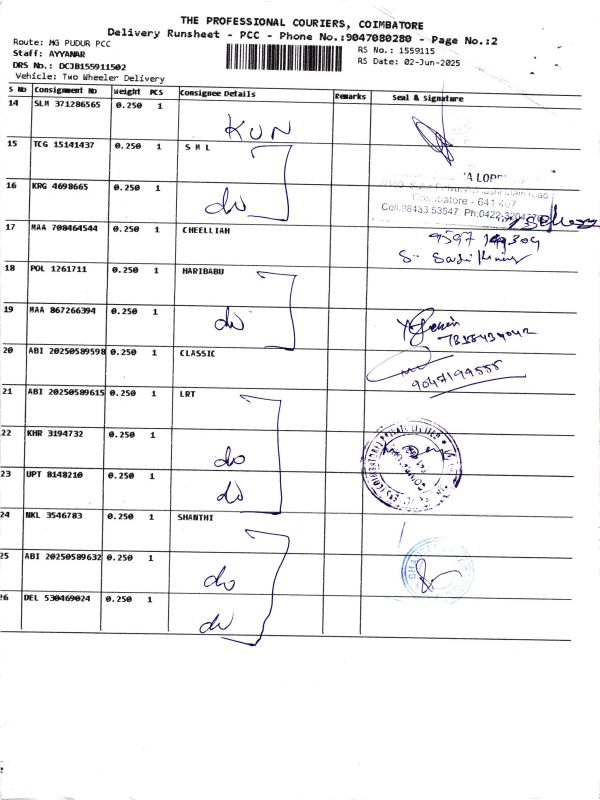 THE PROFESSIONAL COURIERS, COIMBATORE
Delivery Runsheet - PCC - Phone No.:9047080280 - Page No.:2
Route: MG PUDUR PCC
Staff: AYYANAR
DRS No.: DCJB155911502
Vehicle: Two Wheeler Delivery
RS No.: 1559115
RS Date: 02-Jun-2025
S No Consignment No Weight PCS Consignee Details Remarks Seal & Signature
14 SLM 371286565 0.250 1 KUN
15 TCG 15141437 0.250 1 S M L
16 KRG 4698665 0.250 1 do
Coimbatore - 641 407
Cell:98433 53547 Ph:0422
17 MAA 708464544 0.250 1 CHEELLIAH
18 POL 1261711 0.250 1 HARIBABU
19 MAA 867266394 0.250 1 do
20 ABI 20250589598 0.250 1 CLASSIC
9047199555
21 ABI 20250589615 0.250 1 LRT
22 KHR 3194732 0.250 1 do
23 UPT 8148210 0.250 1 do
24 NKL 3546783 0.250 1 SHANTHI
25 ABI 20250589632 0.250 1 do
26 DEL 530469024 0.250 1 do